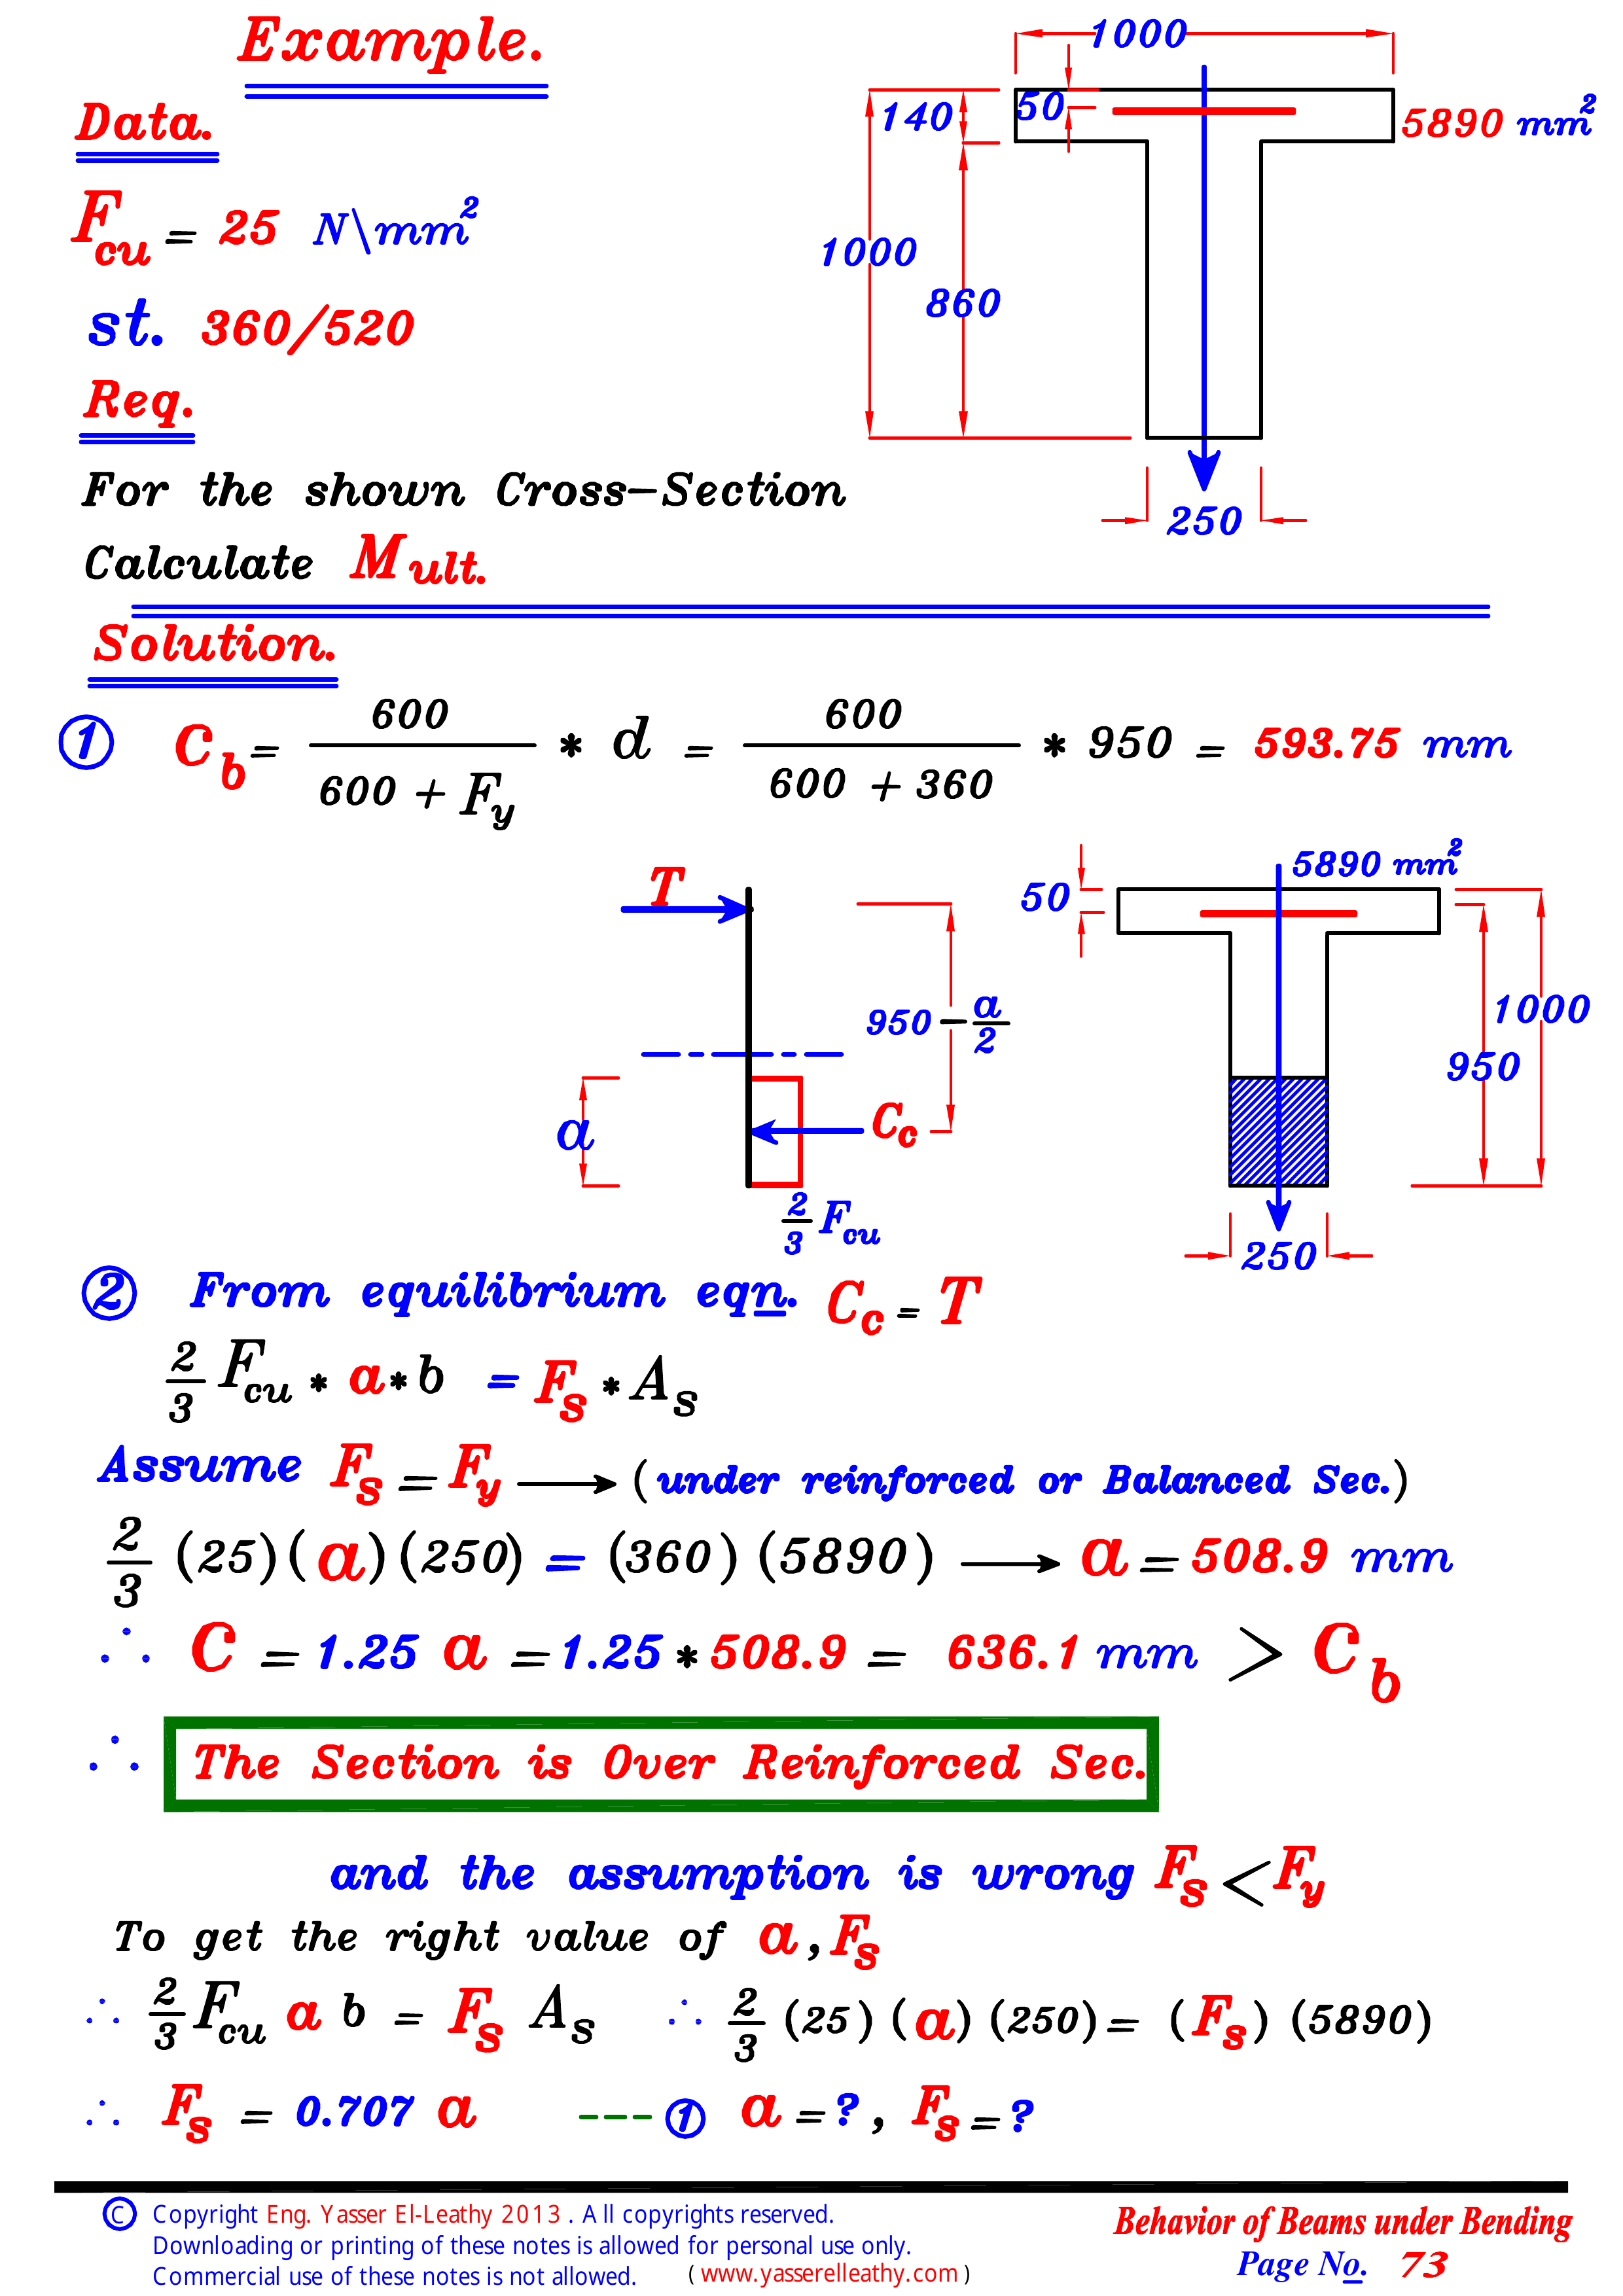 Example.
1000
Data.
140
50
5890 mm²
F_cu = 25 N\mm²
1000
860
st. 360/520
Req.
For the shown Cross-Section
250
Calculate M_ult.
Solution.
① C_b = 600 / (600 + F_y) * d = 600 / (600 + 360) * 950 = 593.75 mm
T
50
5890 mm²
950 - a/2
1000
950
a
C_c
2/3 F_cu
250
② From equilibrium eqn. C_c = T
2/3 F_cu * a * b = F_s * A_s
Assume F_s = F_y ⟶ (under reinforced or Balanced Sec.)
2/3 (25)(a)(250) = (360)(5890) ⟶ a = 508.9 mm
∴ C = 1.25 a = 1.25 * 508.9 = 636.1 mm > C_b
∴ The Section is Over Reinforced Sec.
and the assumption is wrong F_s < F_y
To get the right value of a , F_s
∴ 2/3 F_cu a b = F_s A_s ∴ 2/3 (25)(a)(250) = (F_s)(5890)
∴ F_s = 0.707 a --- ① a = ? , F_s = ?
© Copyright Eng. Yasser El-Leathy 2013 . All copyrights reserved.
Downloading or printing of these notes is allowed for personal use only.
Commercial use of these notes is not allowed. ( www.yasserelleathy.com )
Behavior of Beams under Bending
Page No. 73